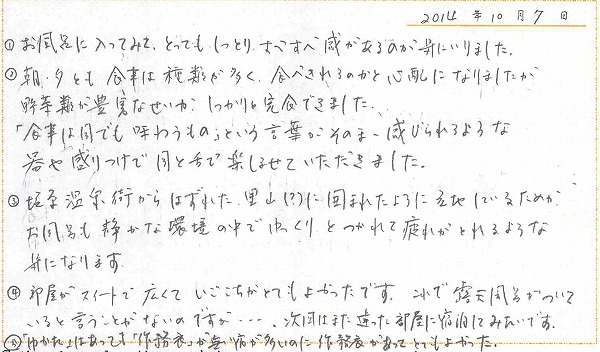 2014 年 10 月 7 日
① お風呂に入ってみて、とってもしっとり、すべすべ感があるのが気にいりました。
② 朝・夕とも食事は種類が多く、食べきれるのかと心配になりましたが
野菜類が豊富なせいか、しっかりと完食できました。
「食事は目でも味わうもの」という言葉がそのまゝ感じられるような
器や盛りつけで目と舌で楽しませていただきました。
③ 塩原温泉街からはずれた、里山(?)に囲まれたように立地しているためか、
お風呂も静かな環境の中でゆっくりとつかれて疲れがとれるような
気になります。
④ 部屋がスイートで広くていごこちがとてもよかったです。これで露天風呂がついて
いると言うことがないのですが・・・・。次回はまた違った部屋に宿泊してみたいです。
⑤ 「ゆかた」はあっても「作務衣」が無い宿が多いのに作務衣があってとてもよかった。